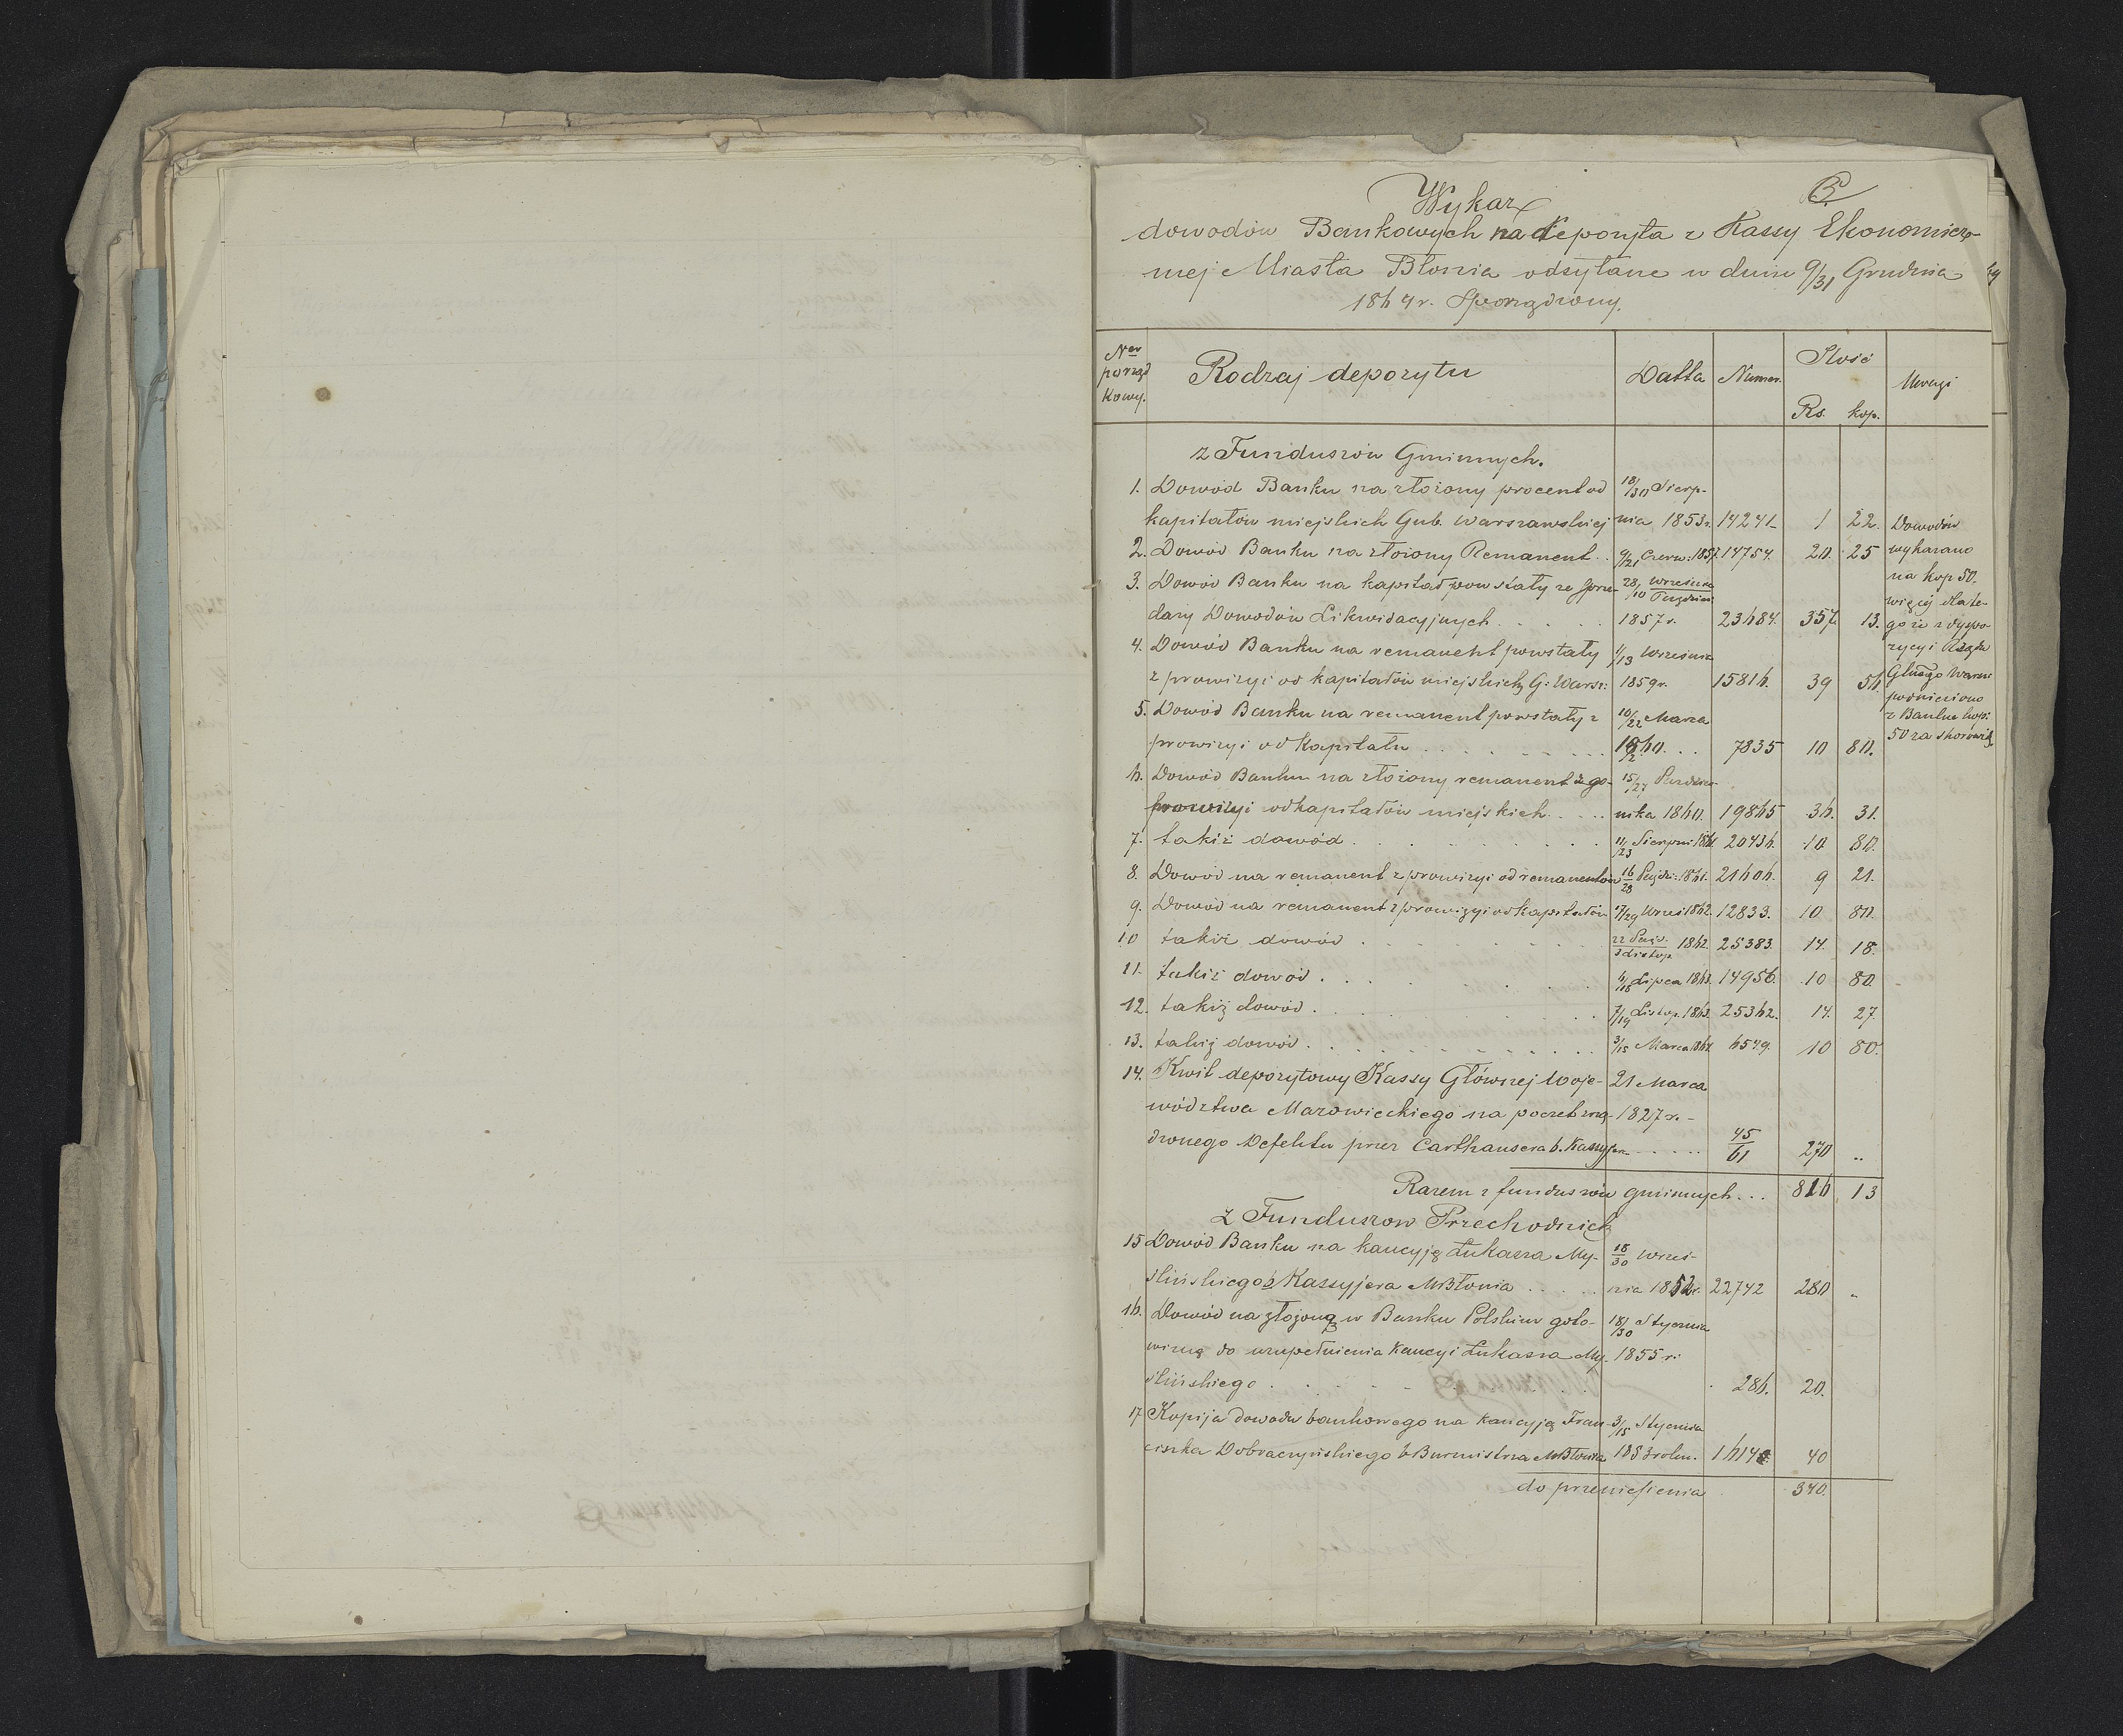 Wykaz B
dowodów Bankowych na depozyta z Kassy Ekonomicz-
nej Miasta Błonia odsyłane w dniu 9/31 Grudnia
1864 r. Sporządzony.
Ner porząd kowy. Rodzaj depozytu Datta Numer. Ilość Rs. kop. Uwagi
z Funduszów Gminnych.
1. Dowód Banku na złożony procent od 18/30 Sierp-
kapitałów miejskich Gub. Warszawskiej nia 1853 r. 14241 1 22. Dowodów
2. Dowód Banku na złożony Remanent . . 9/21 Czerw: 1857. 14754. 20. 25 wykazano
3. Dowód Banku na kapitał powstały ze sprze- 28/10 Września Paździer: na kop 50.
daży Dowodów Likwidacyjnych . . . . . 1857 r. 23684. 357. 13. więcej dlate-
go że z dyspo
4. Dowód Banku na remanent powstały 1/13 Września zycyi Rządu
z prowizyi od kapitałów miejskich G: Warsz: 1859 r. 15816. 39 56 Głnego Warsz
podniesiono
5. Dowód Banku na remanent powstały z 10/22 Marca z Banku kop:
prowizyi od Kapitału . . . . . . . . 1860. . . 7835 10 80. 50 za
6. Dowód Banku na złożony remanent z go- 15/27 Paździer
prowizyi od kapitałów miejskich . . . . nika 1860. 19865 36. 31.
7. takiż dowód . . . . . . . . . 11/23 Sierpni 1861 20436. 10 80.
8. Dowód na remanent z prowizyi od remanentów 16/28 Paźdz: 1861. 21606. 9 21.
9. Dowód na remanent z prowizyi od kapitałów 17/29 Wrześ 1862. 12833. 10. 80.
10 takiż dowód . . . . . . . . . 22 Paźd. 3 Listop 1862. 25383. 14. 18.
11. takiż dowód . . . . . . . . . 6/18 Lipca 1863. 14956. 10 80.
12. takiż dowód . . . . . . . . . 7/19 Listop. 1863. 25362. 14. 27.
13. takiż dowód . . . . . . . . . 3/15 Marca 1864. 6549. 10 80.
14. Kwit depozytowy Kassy Głównej Woje- 21 Marca
wództwa Mazowieckiego na poczet zrzą- 1827 r. -
dzonego Defektu przez Carthausera b. Kassyjera . . . . . 45/61 270 „
Razem z funduszów gminnych . . . 816 13
z Funduszow Przechodnich
15 Dowód Banku na kaucyją Łukasza My- 18/30 Wrześ-
ślińskiego b Kassyjera M Błonia . . . . . nia 1852 r. 22742 280 „
16. Dowód na złożoną w Banku Polskim goto- 18/30 Stycznia
wizną do uzupełnienia kaucyi Łukasza My- 1855 r:
ślińskiego . . . . . . . . . 286. 20.
17 Kopija dowodu bankowego na kaucyją Fran- 3/15 Stycznia
ciszka Dobraczyńskiego b Burmistrza M Błonia 1853 roku. 40
do przeniesienia 340.